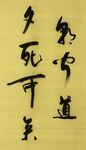 朝聞道
夕死可矣